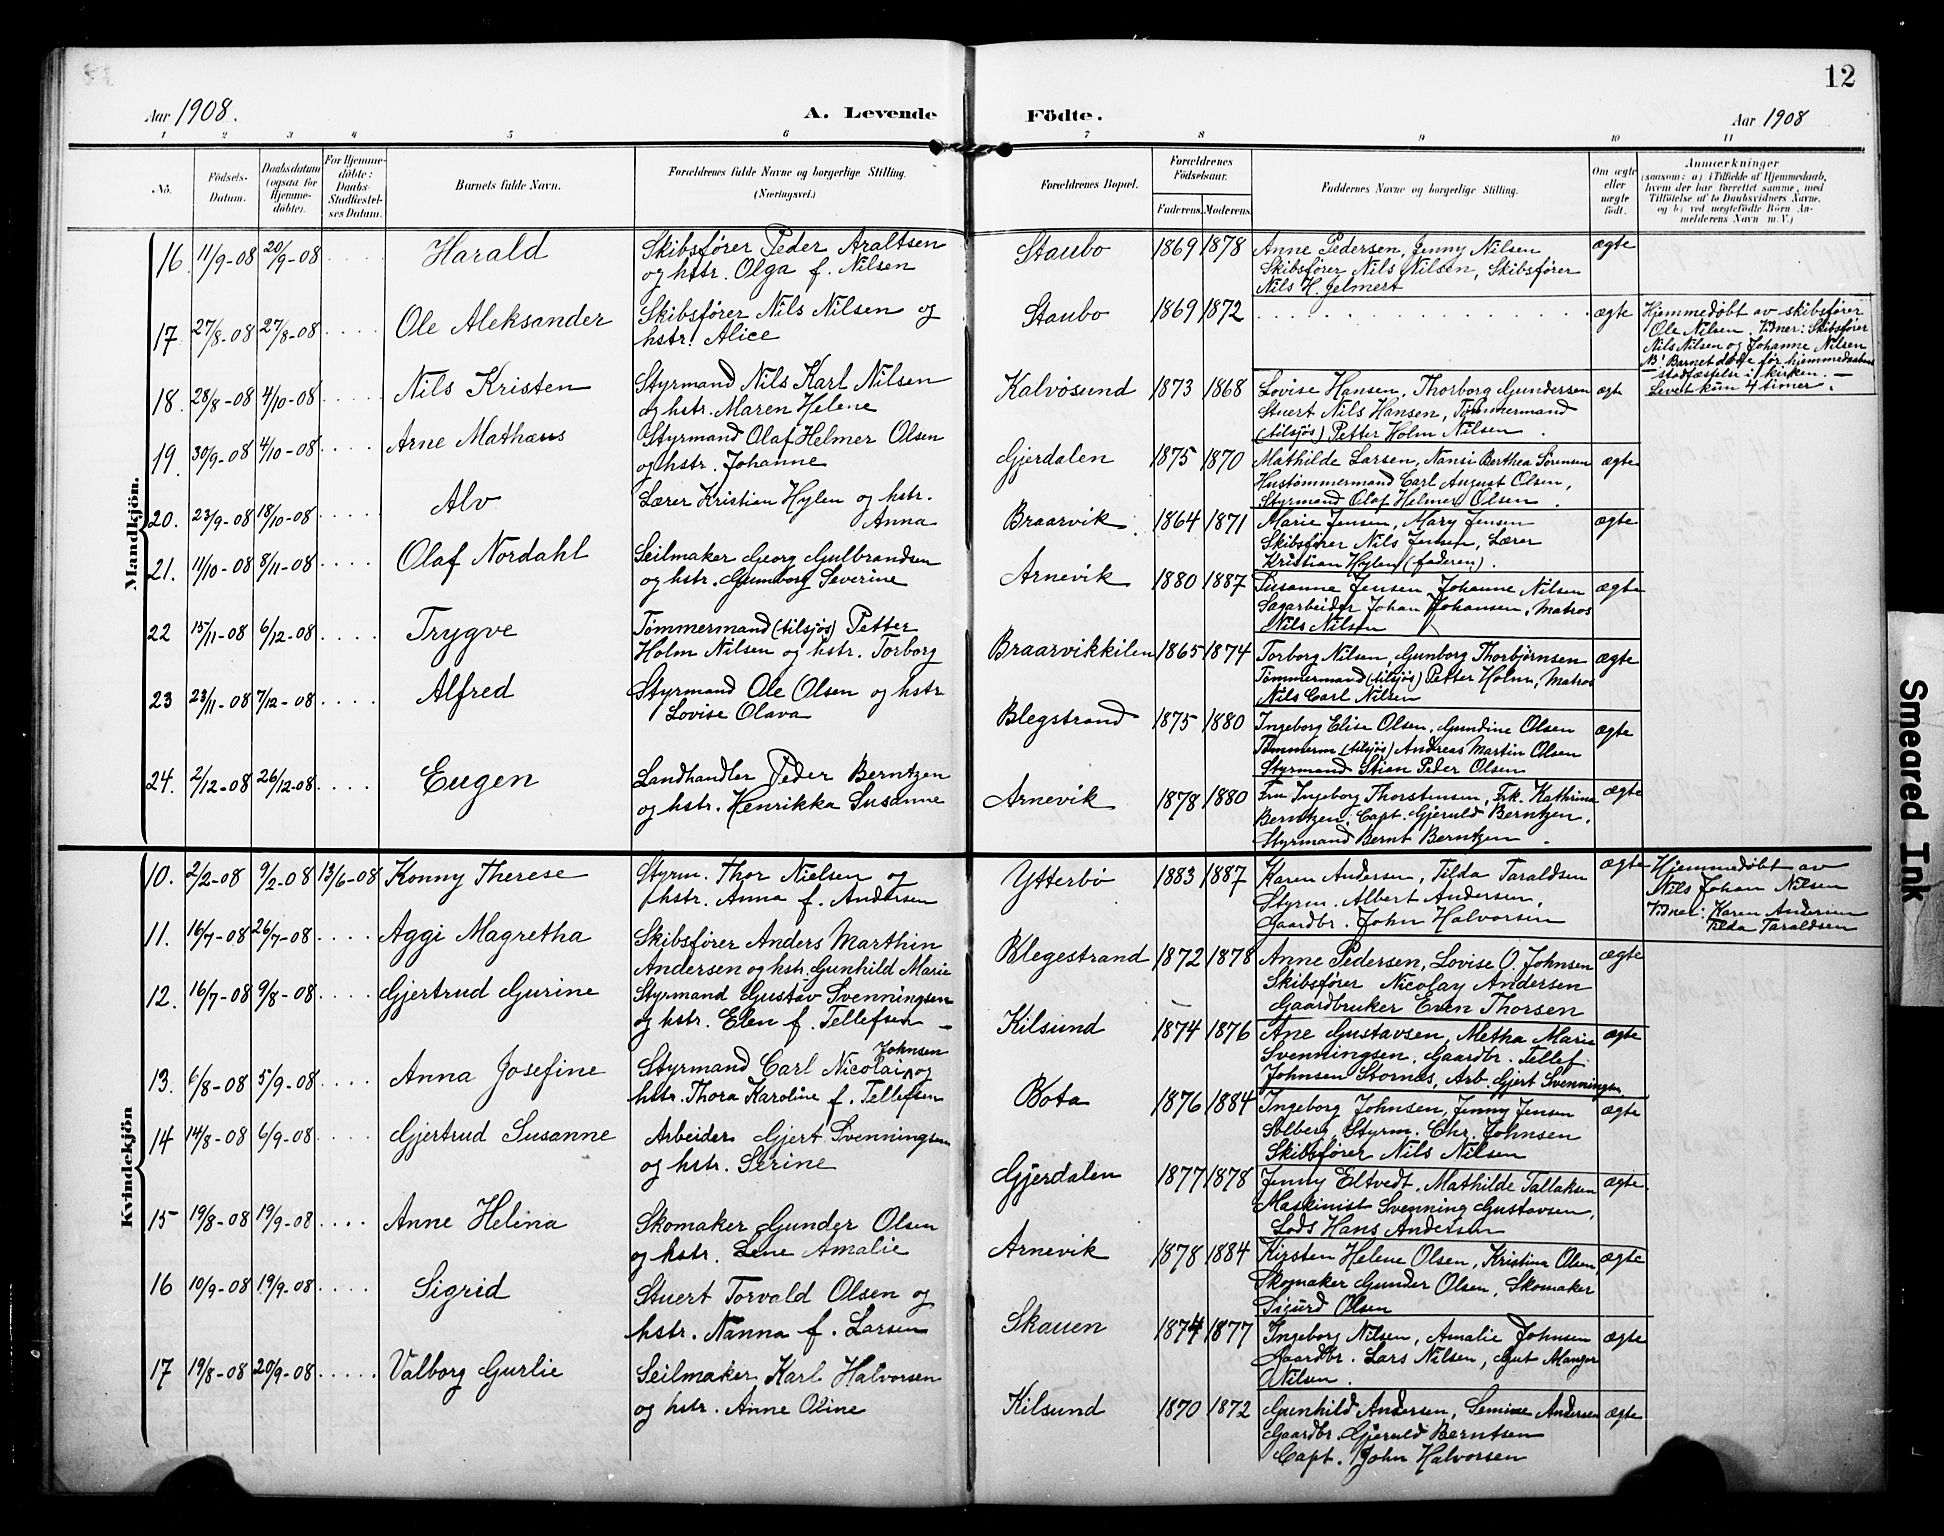 12
Aar 1908.
A. Levende
Födte.
Aar 1908
1 2 3 4 5 6 7 8 9 10 11
No.
Födsels-
Datum.
Daabsdatum
(ogsaa for
Hjemme-
döbte).
For Hjemme-
döbte:
Daabs-
Stadfæstel-
ses Datum.
Barnets fulde Navn.
Forældrenes fulde Navne og borgerlige Stilling.
(Næringsvei.)
Forældrenes Bopæl.
Forældrenes
Födselsaar.
Faderens.
Moderens.
Faddernes Navne og borgerlige Stilling.
Om ægte
eller
uægte
födt.
Anmærkninger
(saasom: a) i Tilfælde af Hjemmedaab,
hvem der har forrettet samme, med
Tilföielse af to Daabsvidners Navne,
og b) ved uægtefödte Börn An-
melderens Navn m. V.)
Mandkjön.
16 11/9-08 20/9-08 .... Harald
Skibsfører Peder Araltsen
og hstr. Olga f. Nilsen
Staubo 1869 1878
Anne Pedersen, Jenny Nilsen
Skibsfører Nils Nilsen, Skibsfører
Nils H. Jelmert
ægte
17 27/8-08 27/8-08 .... Ole Aleksander
Skibsfører Nils Nilsen og
hstr. Alice
Staubo 1869 1872
ægte
Hjemmedøbt av skibsfører
Ole Nilsen. Vidner: Skibsfører
Nils Nilsen og Johanne Nilsen
B! Barnet døde før hjemmedaabens
stadfæstelse i kirken. —
Levet kun 4 timer.
18. 28/8-08 4/10-08 .... Nils Kristen
Styrmand Nils Karl Nilsen
og hstr. Maren Helene
Kalvøsund 1873 1868
Lovise Hansen, Thorborg Gundersen
Stuert Nils Hansen, Tømmermand
(tilsjøs) Petter Holm Nilsen.
ægte
19. 30/9-08 4/10-08 .... Arne Mathæus
Styrmand Olaf Helmer Olsen
og hstr. Johanne
Gjerdalen 1875 1870
Mathilde Larsen, Nansi Berthea Sørensen
Hustømmermand Carl August Olsen,
Styrmand Olaf Helmer Olsen.
ægte
20. 23/9-08 18/10-08 .... Alv
Lærer Kristian Hylen og hstr.
Anna
Braarvik 1864 1871
Marie Jensen, Mary Jensen
Skibsfører Nils Jensen, Lærer
Kristian Hylen (faderen).
ægte
21. 11/10-08 8/11-08 .... Olaf Nordahl
Seilmaker Georg Gulbrandsen
og hstr. Gunborg Severine
Arnevik 1880 1887
Susanne Jensen, Johanne Nilsen
Sagarbeider Johan Johansen, Matros
Nils Nilsen
ægte
22 15/11-08 6/12-08 .... Trygve
Tømmermand (tilsjøs) Petter
Holm Nilsen og hstr. Torborg
Braarvikkilen 1865 1874
Torborg Nilsen, Gunborg Thorbjørnsen
Tømmermand (tilsjøs) Petter Holm, Matros
Nils Carl Nilsen
ægte
23 23/11-08 7/12-08 .... Alfred
Styrmand Ole Olsen og hstr
Lovise Olava
Blegstrand 1875 1880
Ingeborg Elise Olsen, Gundine Olsen
Tømmerm (tilsjøs) Andreas Martin Olsen
Styrmand Stian Peder Olsen
ægte
24. 2/12-08 26/12-08 .... Eugen
Landhandler Peder Berntzen
og hstr. Henrikka Susanne
Arnevik 1878 1880
Fru Ingeborg Thorstensen, Frk. Kathrina
Berntzen, Capt. Gjeruld Berntzen,
Styrmand Bernt Berntzen.
ægte
Kvindekjön
10. 2/2-08 9/2-08 13/6-08 Konny Therese
Styrm. Thor Nielsen og
hstr. Anna f. Andersen
Ytterbø 1883 1887
Karen Andersen, Tilda Taraldsen
Styrm. Albert Andersen,
Gaardbr. John Halvorsen
ægte
Hjemmedøbt av
Nils Johan Nilsen
Vidner: Karen Andersen
Tilda Taraldsen
11. 16/7-08 26/7-08 .... Aggi Magretha
Skibsfører Anders Marthin
Andersen og hstr. Gunhild Marie
Blegestrand 1872 1878
Anne Pedersen, Lovise O. Johnsen
Skibsfører Nicolay Andersen
Gaardbruker Even Thorsen
ægte
12. 16/7-08 9/8-08 .... Gjertrud Gurine
Styrmand Gustav Svenningsen
og hstr. Elen f. Tellefsen —
Kilsund 1874 1876
Ane Gustavsen, Metha Marie
Svenningsen, Gaardbr. Tellef
Johnsen Stornæs, Arb. Gjert Svenningsen
ægte
13. 6/8-08 5/9-08 .... Anna Josefine
Johnsen
Styrmand Carl Nicolai og
hstr. Thora Karoline f. Tellefsen
Bota 1876 1884
Ingeborg Johnsen, Jenny Jensen
Solberg, Styrm. Chr. Johnsen
Skibsfører Nils Nilsen
ægte
14 14/8-08 6/9-08 .... Gjertrud Susanne
Arbeider Gjert Svenningsen
og hstr. Serine
Gjerdalen 1877 1878
Jenny Eltvedt, Mathilde Tallaksen
Maskinist Svenning Gustavsen,
Lods Hans Andersen
ægte
15 19/8-08 19/9-08 .... Anne Helina
Skomaker Gunder Olsen
og hstr. Lene Amalie
Arnevik 1878 1884
Kirsten Helene Olsen, Kristina Olsen,
Skomaker Gunder Olsen, Skomaker
Sigurd Olsen
ægte
16 10/9-08 19/9-08 .... Sigrid
Stuert Torvald Olsen og
hstr. Nanna f. Larsen
Skauen 1874 1877
Ingeborg Nilsen, Amalie Johnsen
Gaardbr. Lars Nilsen, Gut Manger
Nilsen.
ægte
17 19/8-08 20/9-08 .... Valborg Gurlie
Seilmaker Karl Halvorsen
og hstr. Anne Oline
Kilsund 1870 1872
Gunhild Andersen, Semine Andersen
Gaardbr. Gjeruld Berntsen
Capt. John Halvorsen
ægte
Smeared Ink